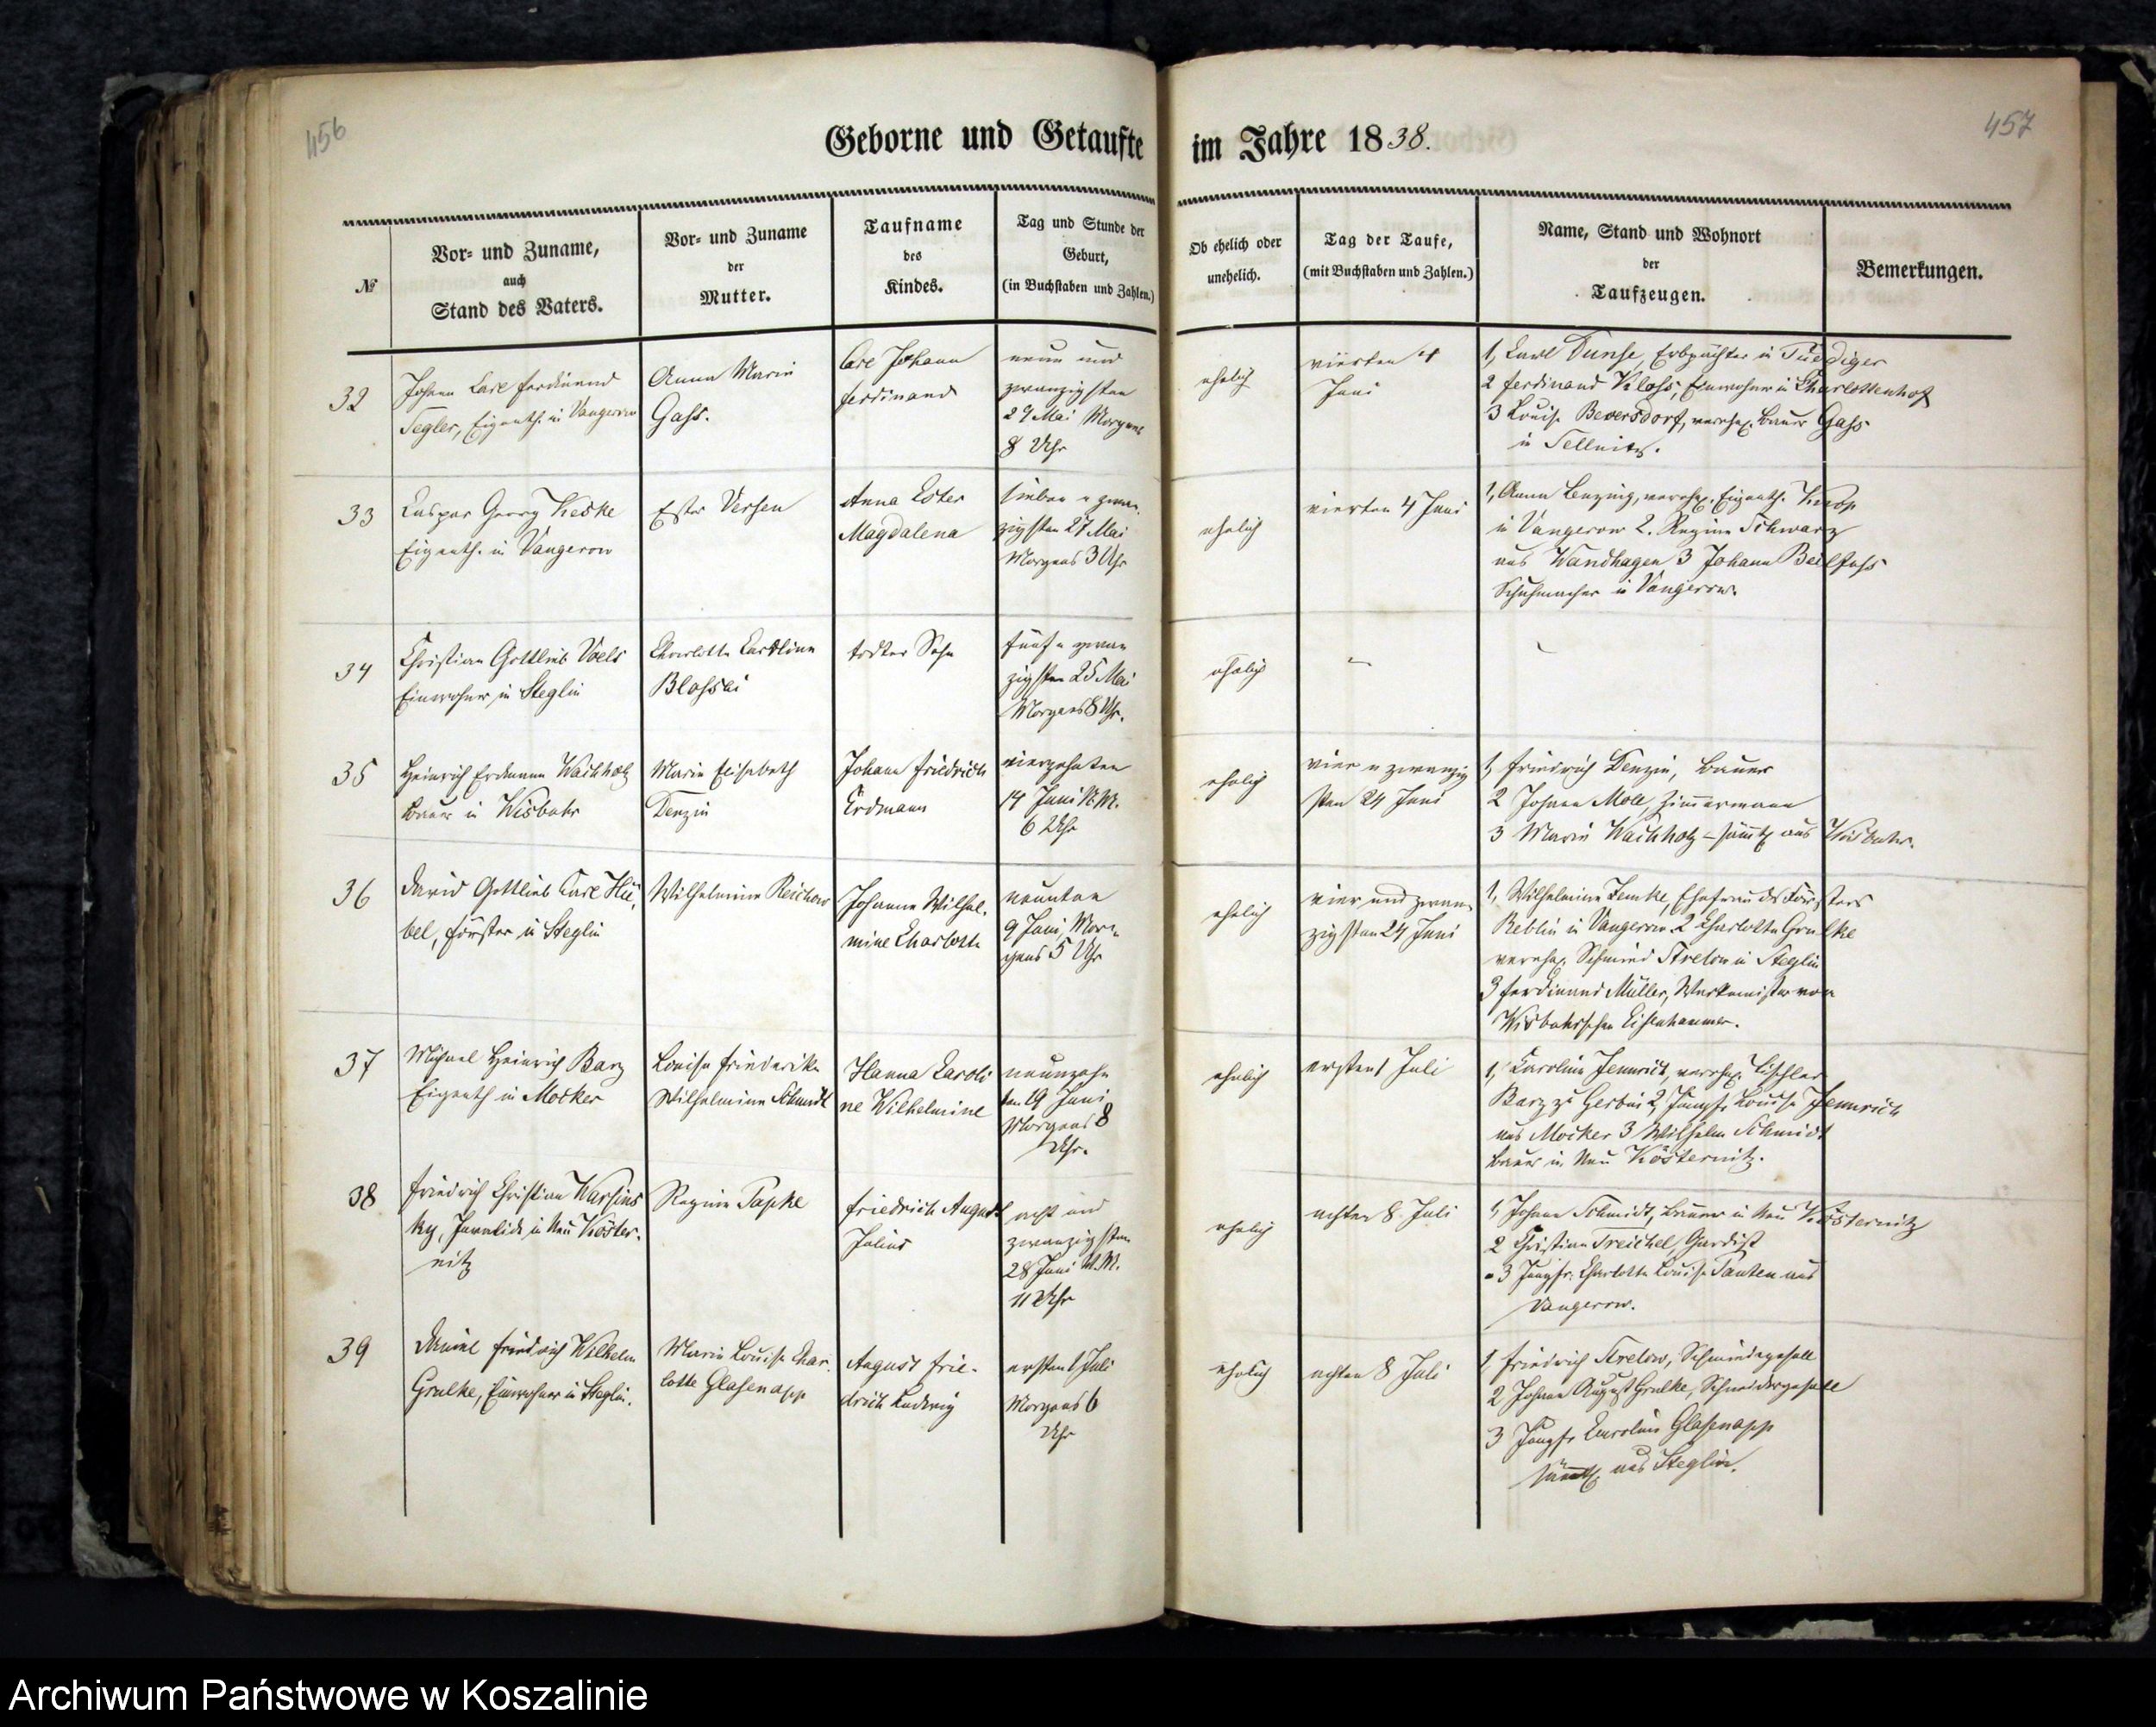 456
457
Geborne und Getaufte im Jahre 1838.
№
Vor- und Zuname,
auch
Stand des Vaters.
Vor- und Zuname
der
Mutter.
Taufname
des
Kindes.
Tag und Stunde der
Geburt,
(in Buchstaben und Zahlen.)
Ob ehelich oder
unehelich.
Tag der Taufe,
(mit Buchstaben und Zahlen.)
Name, Stand und Wohnort
der
Taufzeugen.
Bemerkungen.
32
Johann Carl Ferdinand
Tegler, Eigenth. in Vangerow
Anna Marie
Gass.
Carl Johann
Ferdinand
neun und
zwanzigsten
29 Mai Morgens
8 Uhr
ehelich
vierten 4
Juni
1, Carl Dunse, Erbpächter in
2 Ferdinand Kloss, Einwohner in Charlottenhof
3 Louise Beversdorf, vereh. Bauer Gass
in
33
Caspar Georg Keske
Eigenth. in Vangerow
Ester Versen
Anna Ester
Magdalena
sieben u zwan
zigsten 27 Mai
Morgens 3 Uhr
ehelich
vierten 4 Juni
1, Anna verehe. Eigenth. Knop
in Vangerow 2. Regine Schwarz
aus Wandhagen 3 Johann Beilfuss
Schuhmacher in Vangerow.
34
Christian Gottlieb Voels
Einwohner in Steglin
Charlotte Caroline
todter Sohn
fünf u zwan
zigsten 25 Mai
Morgens 8 Uhr.
ehelich
35
Heinrich Erdmann Wachholz
Bauer in Wisbuhr
Marie Elisabeth
Denzin
Johann Friedrich
Erdmann
vierzehnten
14 Juni N.M.
6 Uhr
ehelich
vier u zwanzig
sten 24 Juni
1, Friedrich Denzin, Bauer
2 Johann Moll, Zimmermann
3 Marie Wachholz – sämtl. aus Wisbuhr.
36
David Gottlieb Carl Hü-
bel, Förster in Steglin
Wilhelmine Reichow
Johanne Wilhel-
mine Charlotte
neunten
9 Juni, Mor-
gens 5 Uhr
ehelich
vier und zwan-
zigsten 24 Juni
1, Wilhelmine Lemke, Ehefrau ds Försters
Reblin in Vangerow. 2 Charlotte Grulke
vereh. Schmied Stretow in Steglin
3 Ferdinand Müller, Werkmeister vom
Wisbuhrschen Eisenhammer.
37
Michael Heinrich Barz
Eigenth in Mocker
Louise Friederike
Wilhelmine Schmidt
Hanna Caroli
ne Wilhelmine
neunzehn
ten 19 Juni
Morgens 8
Uhr.
ehelich
ersten 1 Juli
1, Caroline Jennrich, vereh. Tischler
Barz zu 2, Jungfr. Louise Jennrich
aus Mocker 3 Wilhelm Schmidt
Bauer in Neu Kösternitz.
38
Friedrich Christian Warsins
ky, Invalide in Neu Köster-
nitz
Regine Papke
Friedrich August
Julius
acht und
zwanzigsten
28 Juni N.M.
11 Uhr
ehelich
achten 8 Juli
1, Johann Schmidt, Bauer in Neu Kösternitz
2 Christian Treichel, Gardist
3 Jungfr. Charlotte Louise Panten aus
Vangerow.
39
Daniel Friedrich Wilhelm
Grulke, Einwohner in Steglin.
Marie Louise Char-
lotte Glasenapp
August Frie-
drich Ludwig
ersten 1 Juli
Morgens 6
Uhr
ehelich
achten 8 Juli
1 Friedrich Stretow, Schmiedegesell
2 Johann August Grulke, Schneidergesell
3 Jungfr Caroline Glasenapp
sämtl. aus Steglin.
Archiwum Państwowe w Koszalinie